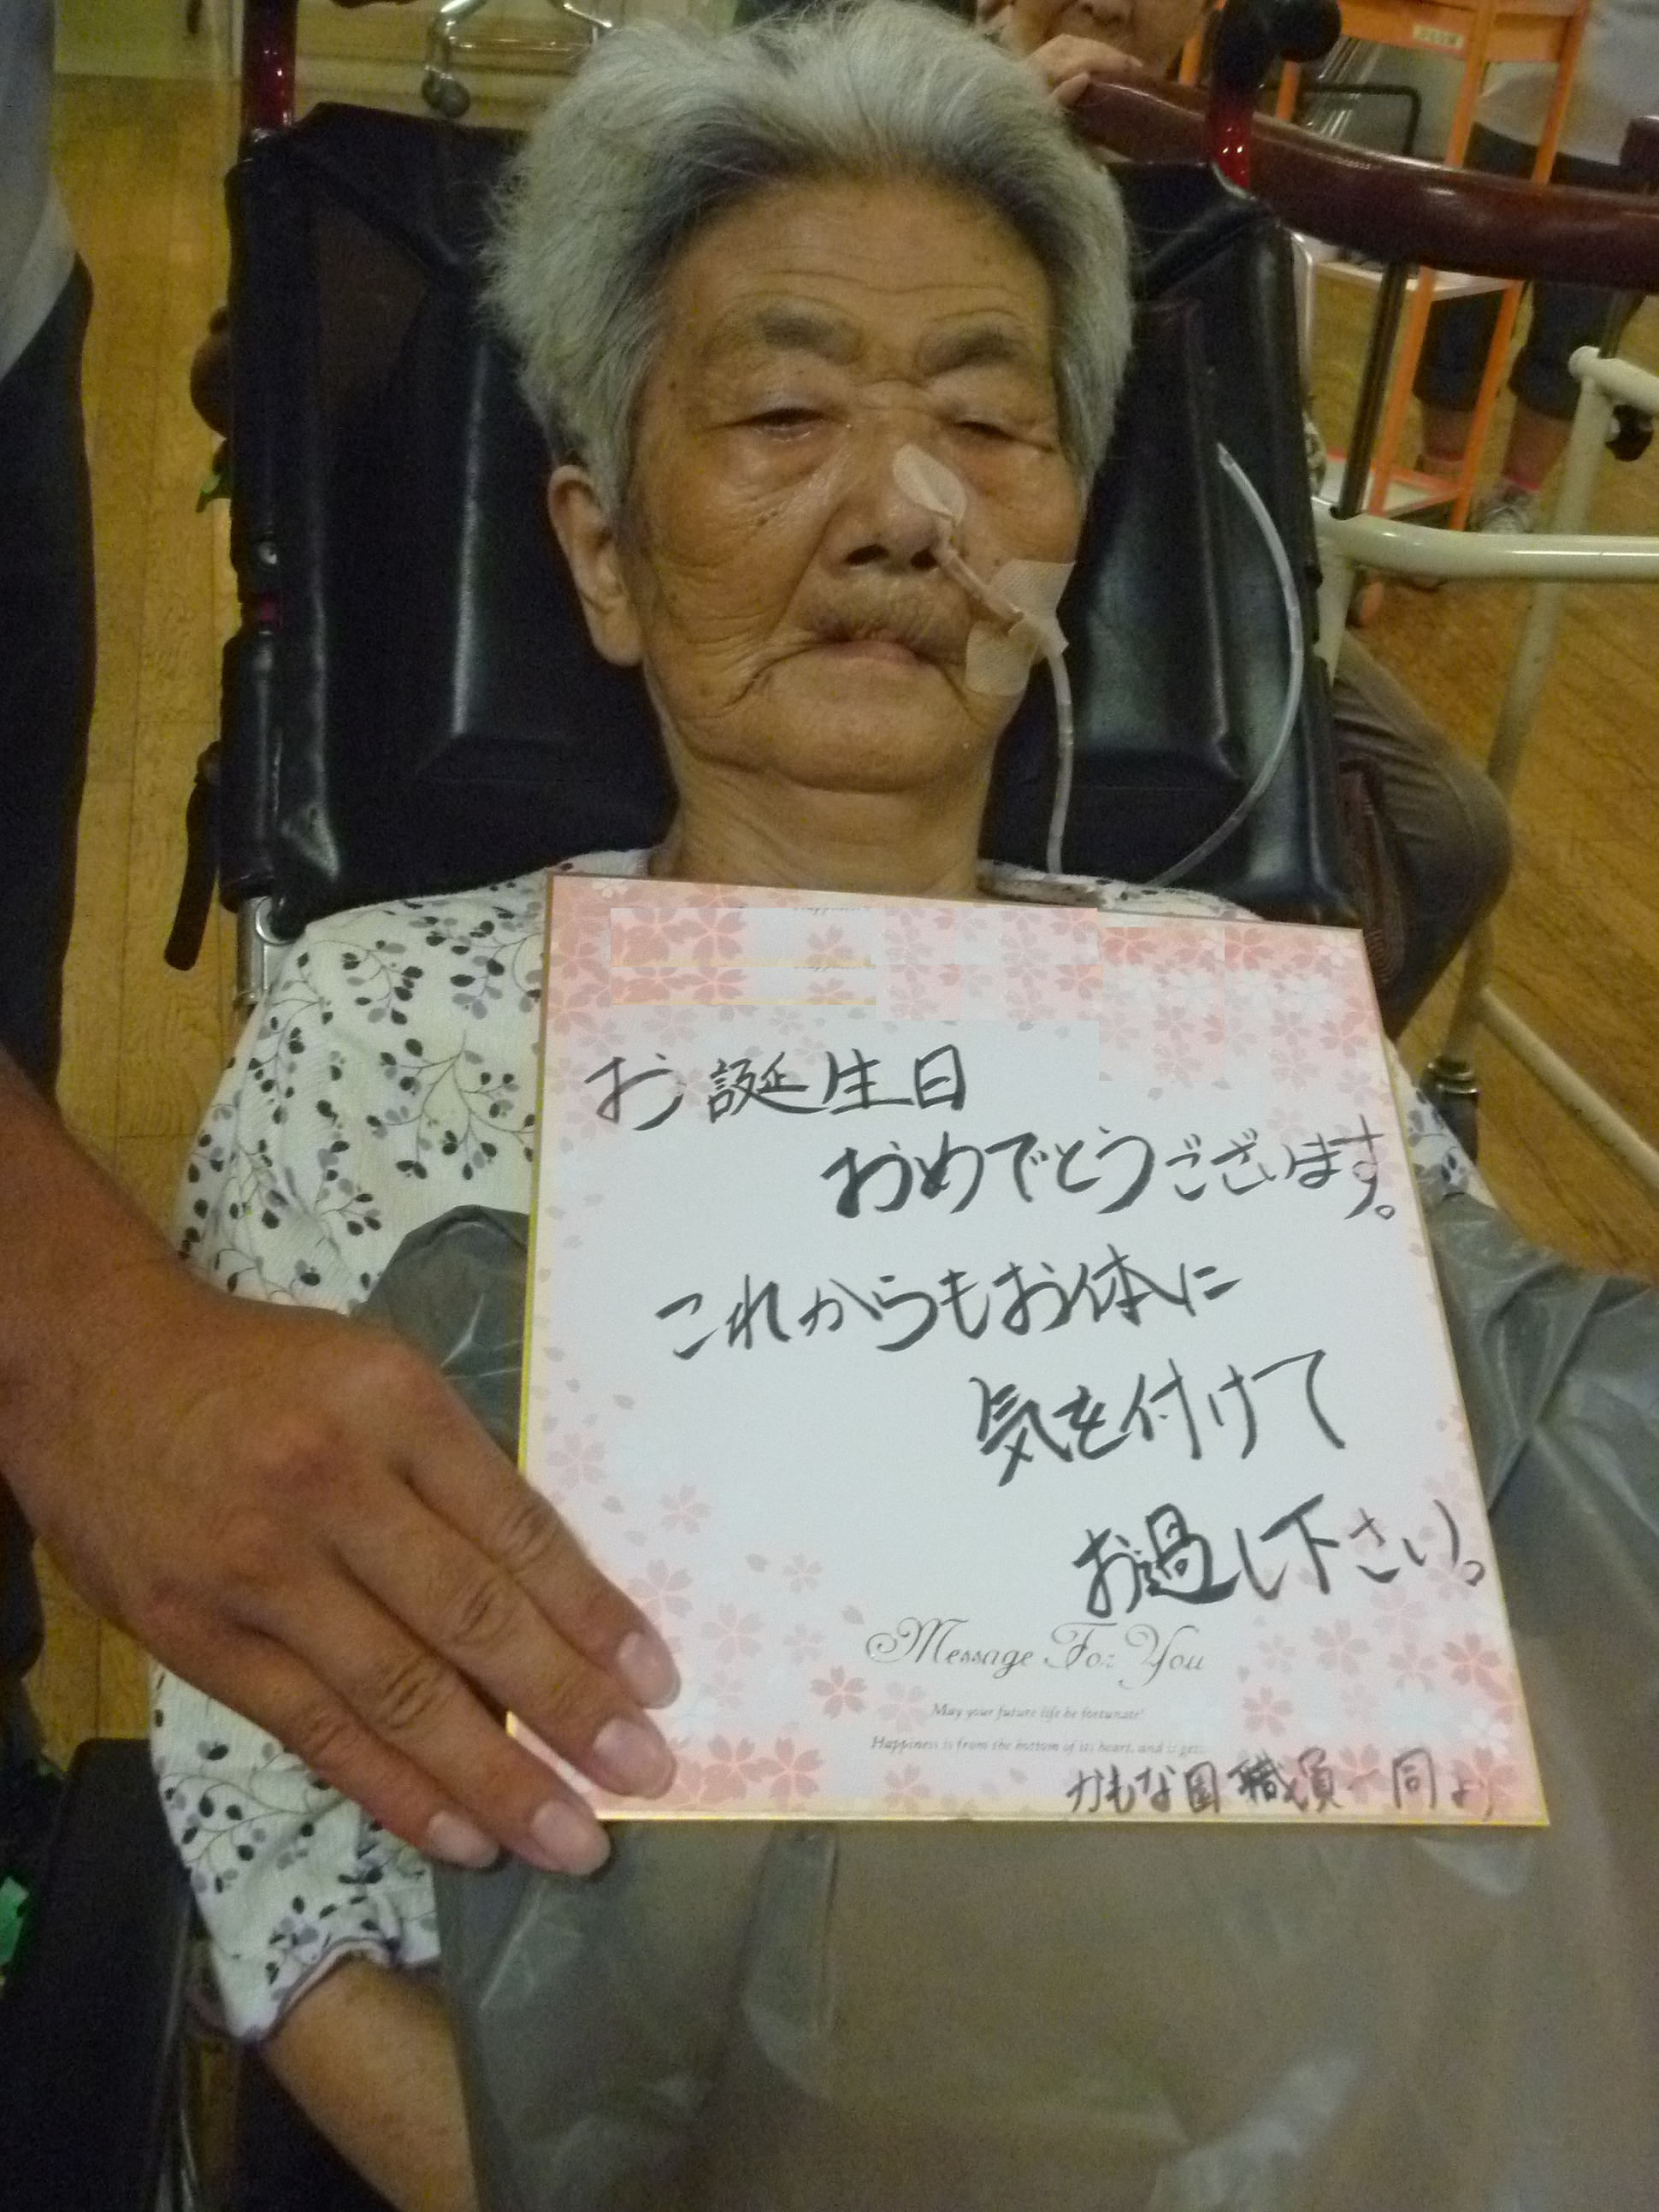 お誕生日
おめでとうございます。
これからもお体に
気を付けて
お過し下さい。
Message For You
May your future life be fortunate!
Happiness is from the bottom of its heart, and is get
かもな園 職員一同より